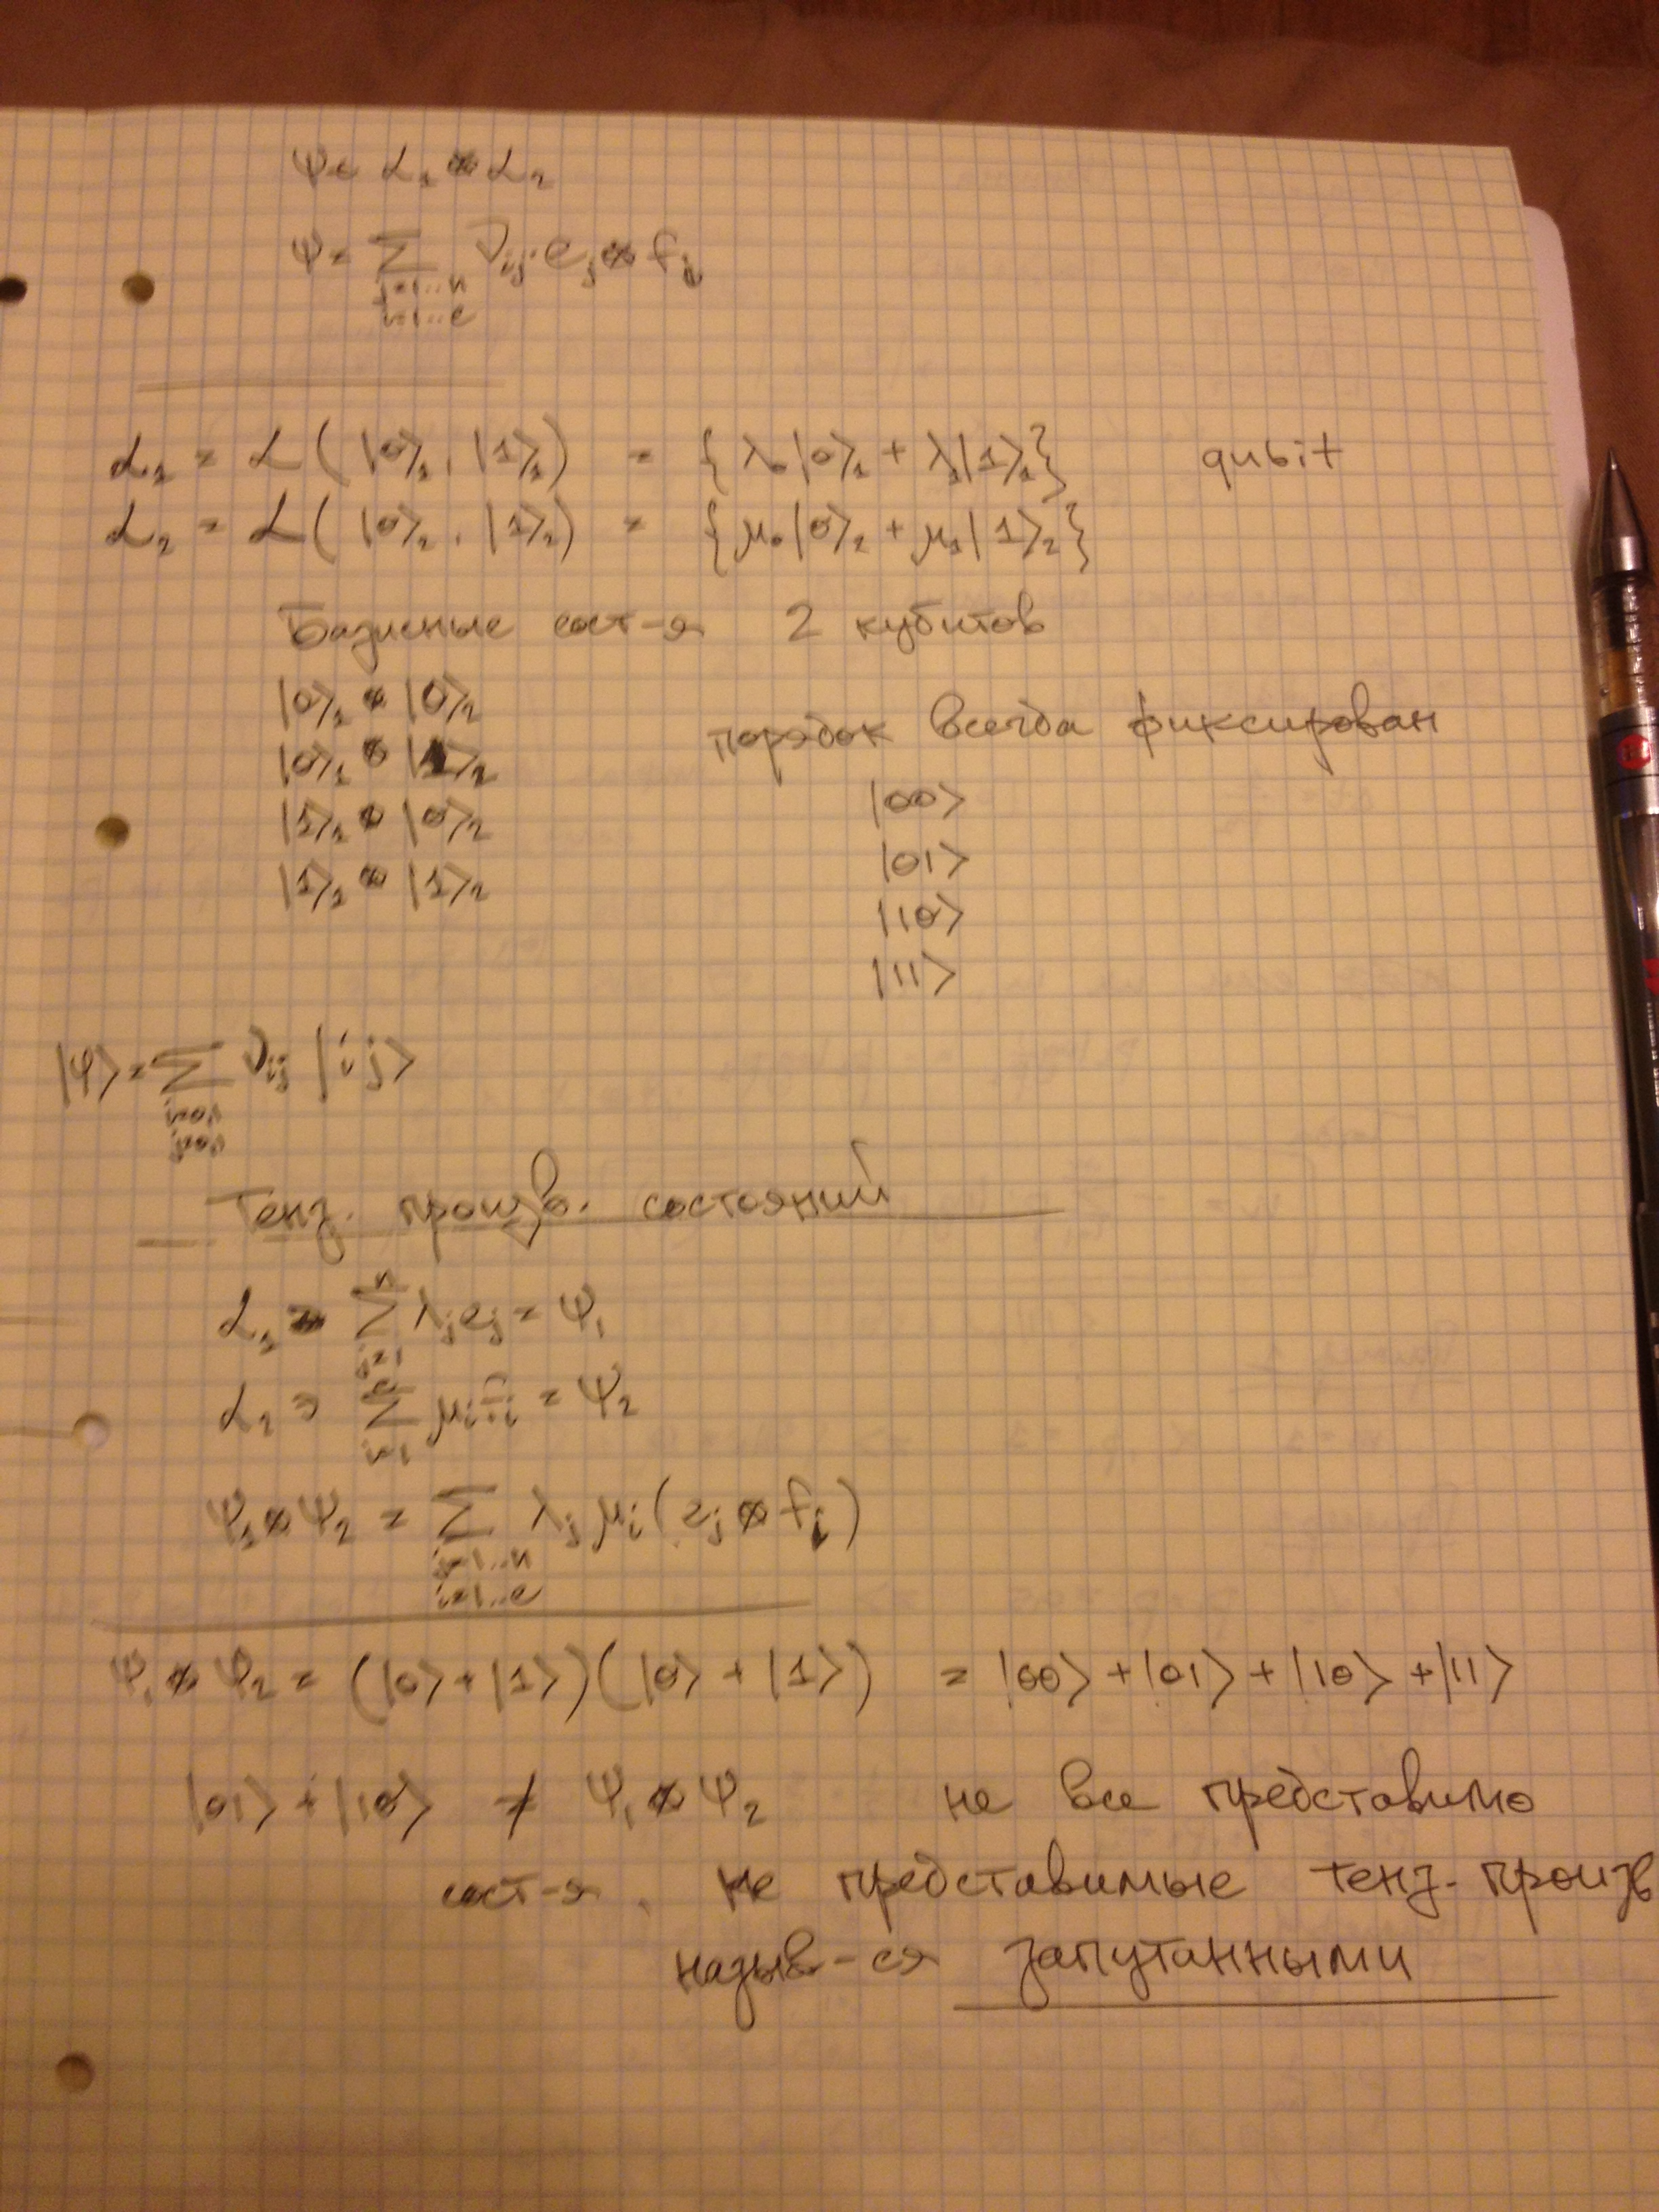 ψ ∈ ℒ₁ ⊗ ℒ₂
ψ = ∑ ν_ij · e_j ⊗ f_i
j=1...n
i=1...ℓ
ℒ₁ = ℒ(|0⟩₁, |1⟩₁) = {λ₀|0⟩₁ + λ₁|1⟩₁} qubit
ℒ₂ = ℒ(|0⟩₂, |1⟩₂) = {μ₀|0⟩₂ + μ₁|1⟩₂}
Базисные сост-я 2 кубитов
|0⟩₁ ⊗ |0⟩₂
порядок всегда фиксирован
|0⟩₁ ⊗ |1⟩₂
|00⟩
|1⟩₁ ⊗ |0⟩₂
|01⟩
|1⟩₁ ⊗ |1⟩₂
|10⟩
|11⟩
|ψ⟩ = ∑ ν_ij |ij⟩
i=0,1
j=0,1
Тенз. произв. состояний
ℒ₁ ∋ ∑_{j=1}^{n} λ_j e_j = ψ₁
ℒ₂ ∋ ∑_{i=1}^{ℓ} μ_i f_i = ψ₂
ψ₁ ⊗ ψ₂ = ∑ λ_j μ_i (e_j ⊗ f_i)
j=1...n
i=1...ℓ
ψ₁ ⊗ ψ₂ = (|0⟩ + |1⟩)(|0⟩ + |1⟩) = |00⟩ + |01⟩ + |10⟩ + |11⟩
|01⟩ + |10⟩ ≠ ψ₁ ⊗ ψ₂ не все представимо
сост-я, не представимые тенз. произв
назыв-ся запутанными